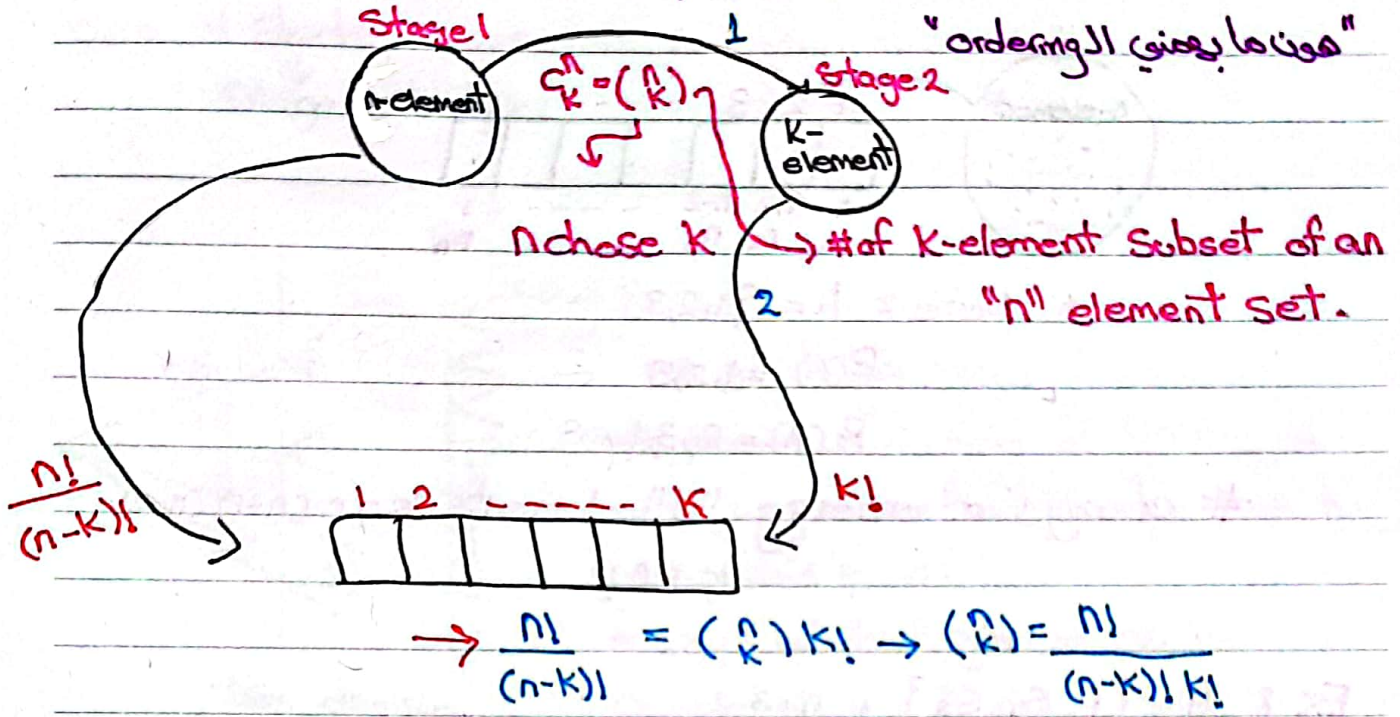 Stage1
1
"هون ما بهمني الordering"
n-element
C^n_k = (n k)
Stage2
k-element
n chose k → # of k-element subset of an
2
"n" element set.
n!/(n-k)!
1 2 - - - - - k
k!
→ n!/(n-k)! = (n k) k! → (n k) = n!/(n-k)! k!